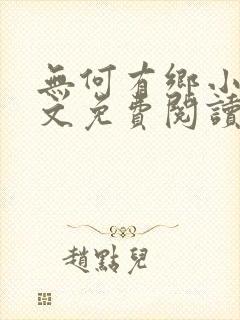 無何有鄉小
文免費閱讀
趙點兒